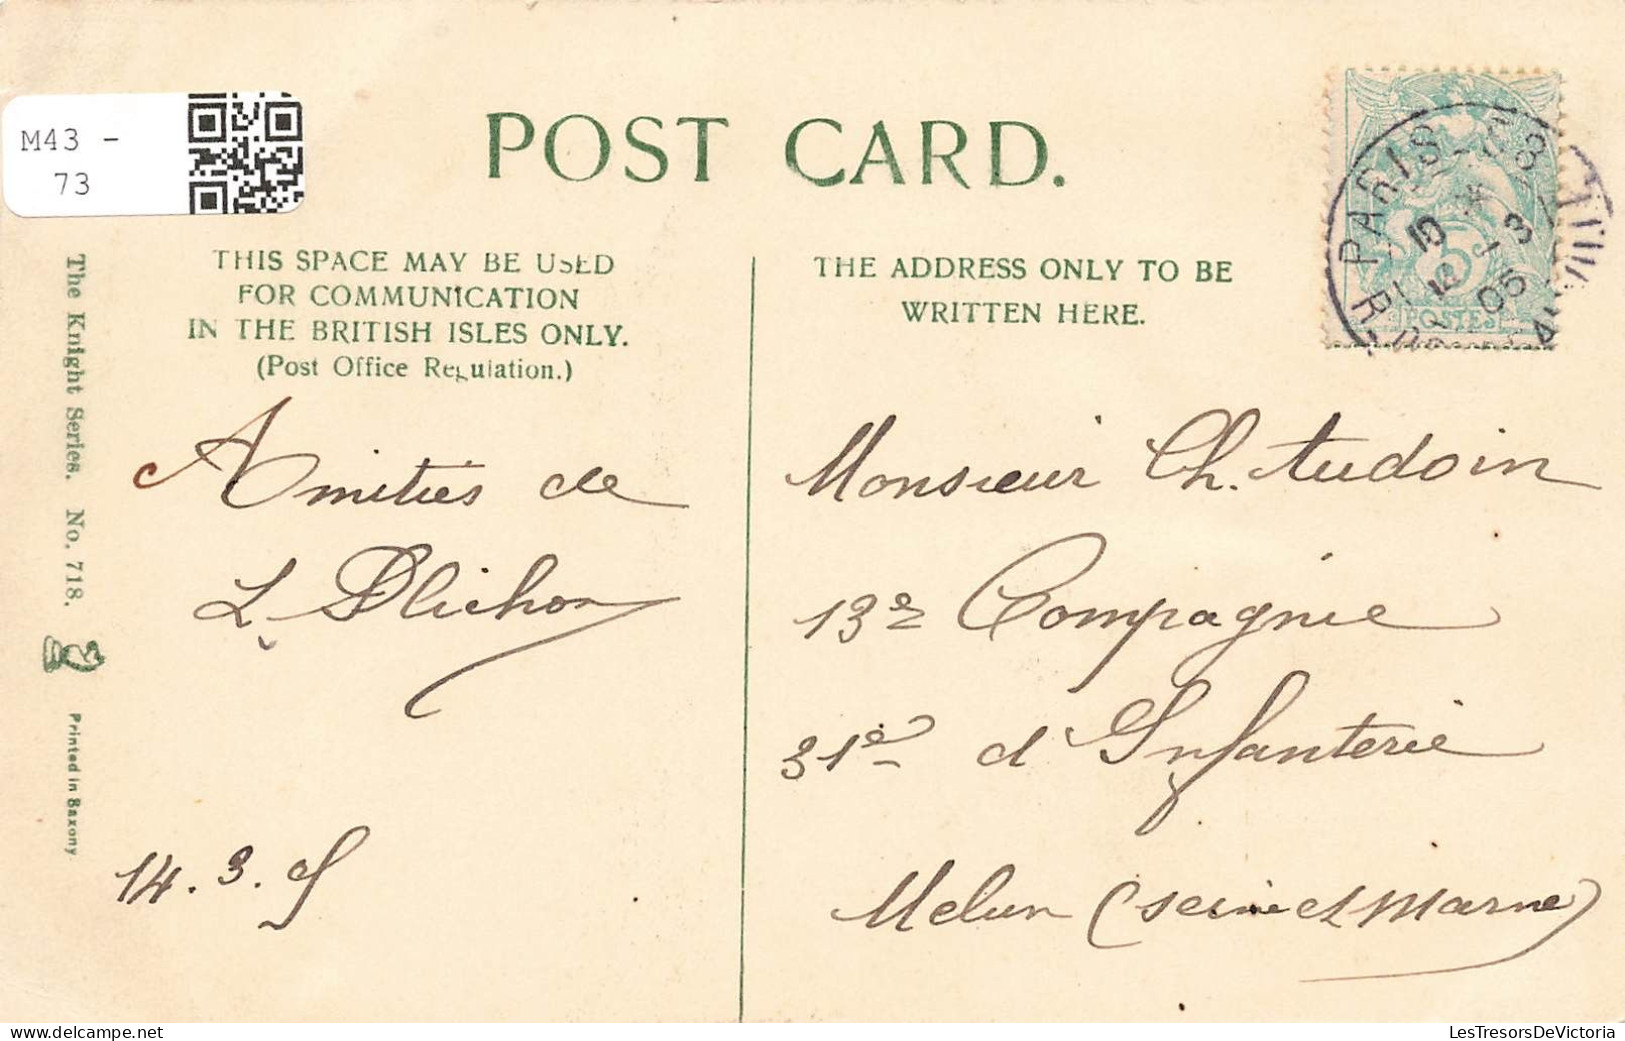 M43 -
73
POST CARD.
THIS SPACE MAY BE USED
FOR COMMUNICATION
IN THE BRITISH ISLES ONLY.
(Post Office Regulation.)
THE ADDRESS ONLY TO BE
WRITTEN HERE.
PARIS
3
05
5
POSTES
The Knight Series. No. 718.
Printed in Saxony
Amitiés de
L.
14. 3. 05
Monsieur Ch. Audoin
13e Compagnie
31e d'Infanterie
Melun (Seine et Marne)
LesTresorsDeVictoria